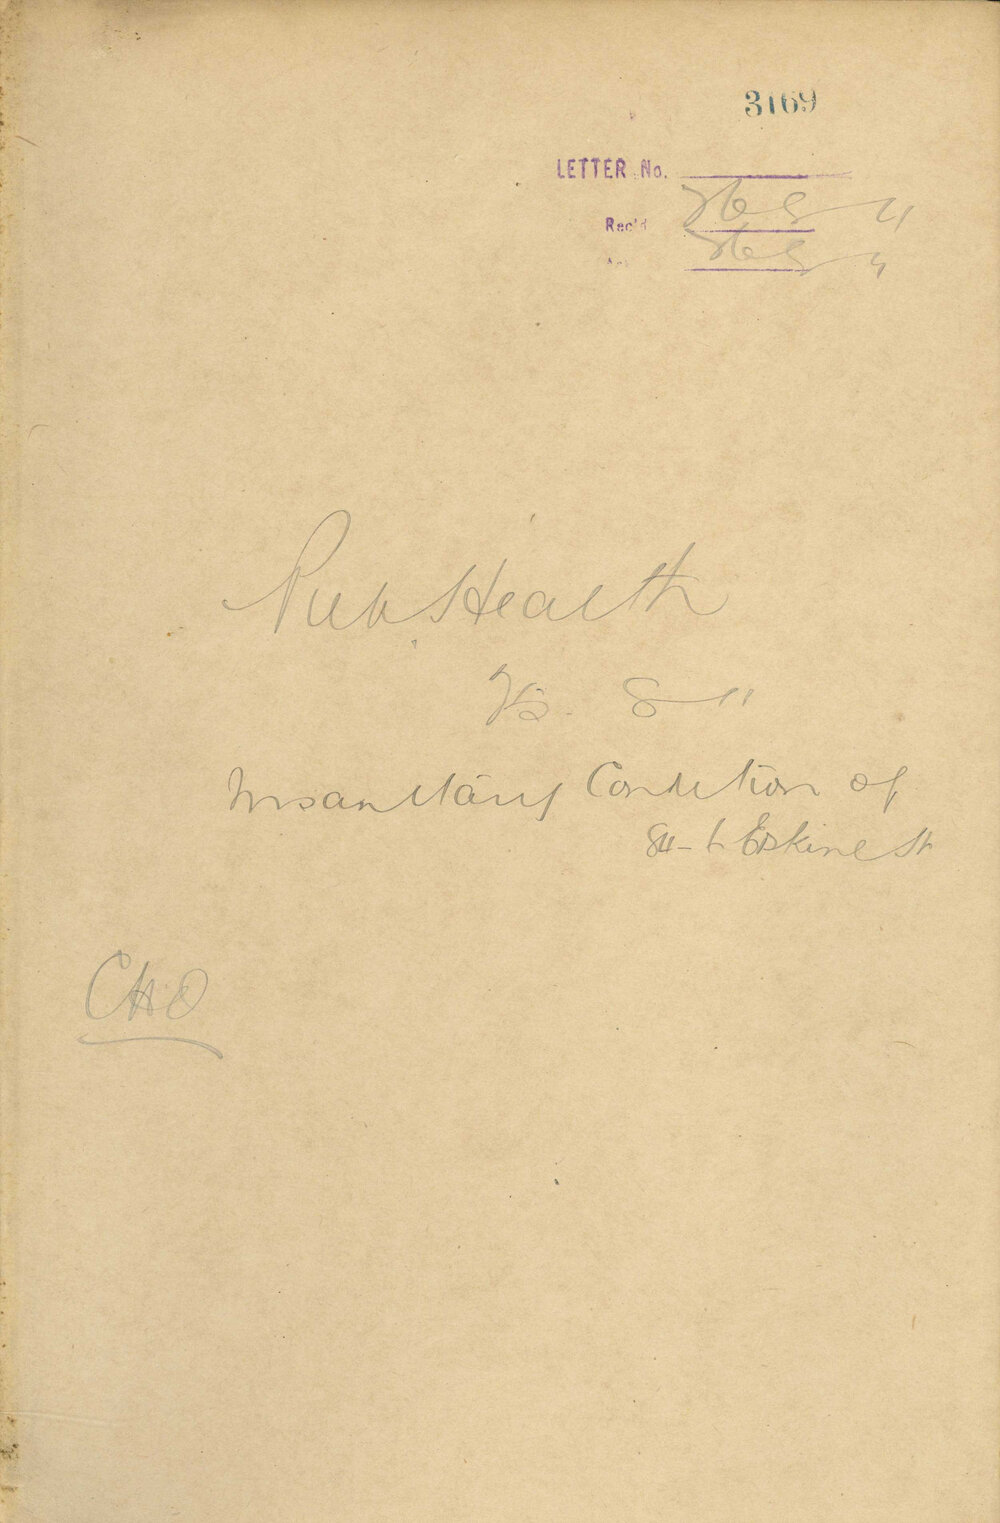 3169
LETTER No.
Rec'd 26 8 11
Ack 26 8 11
Pub Health
25. 8 11
Insanitary Condition of
Erskine St
CHO